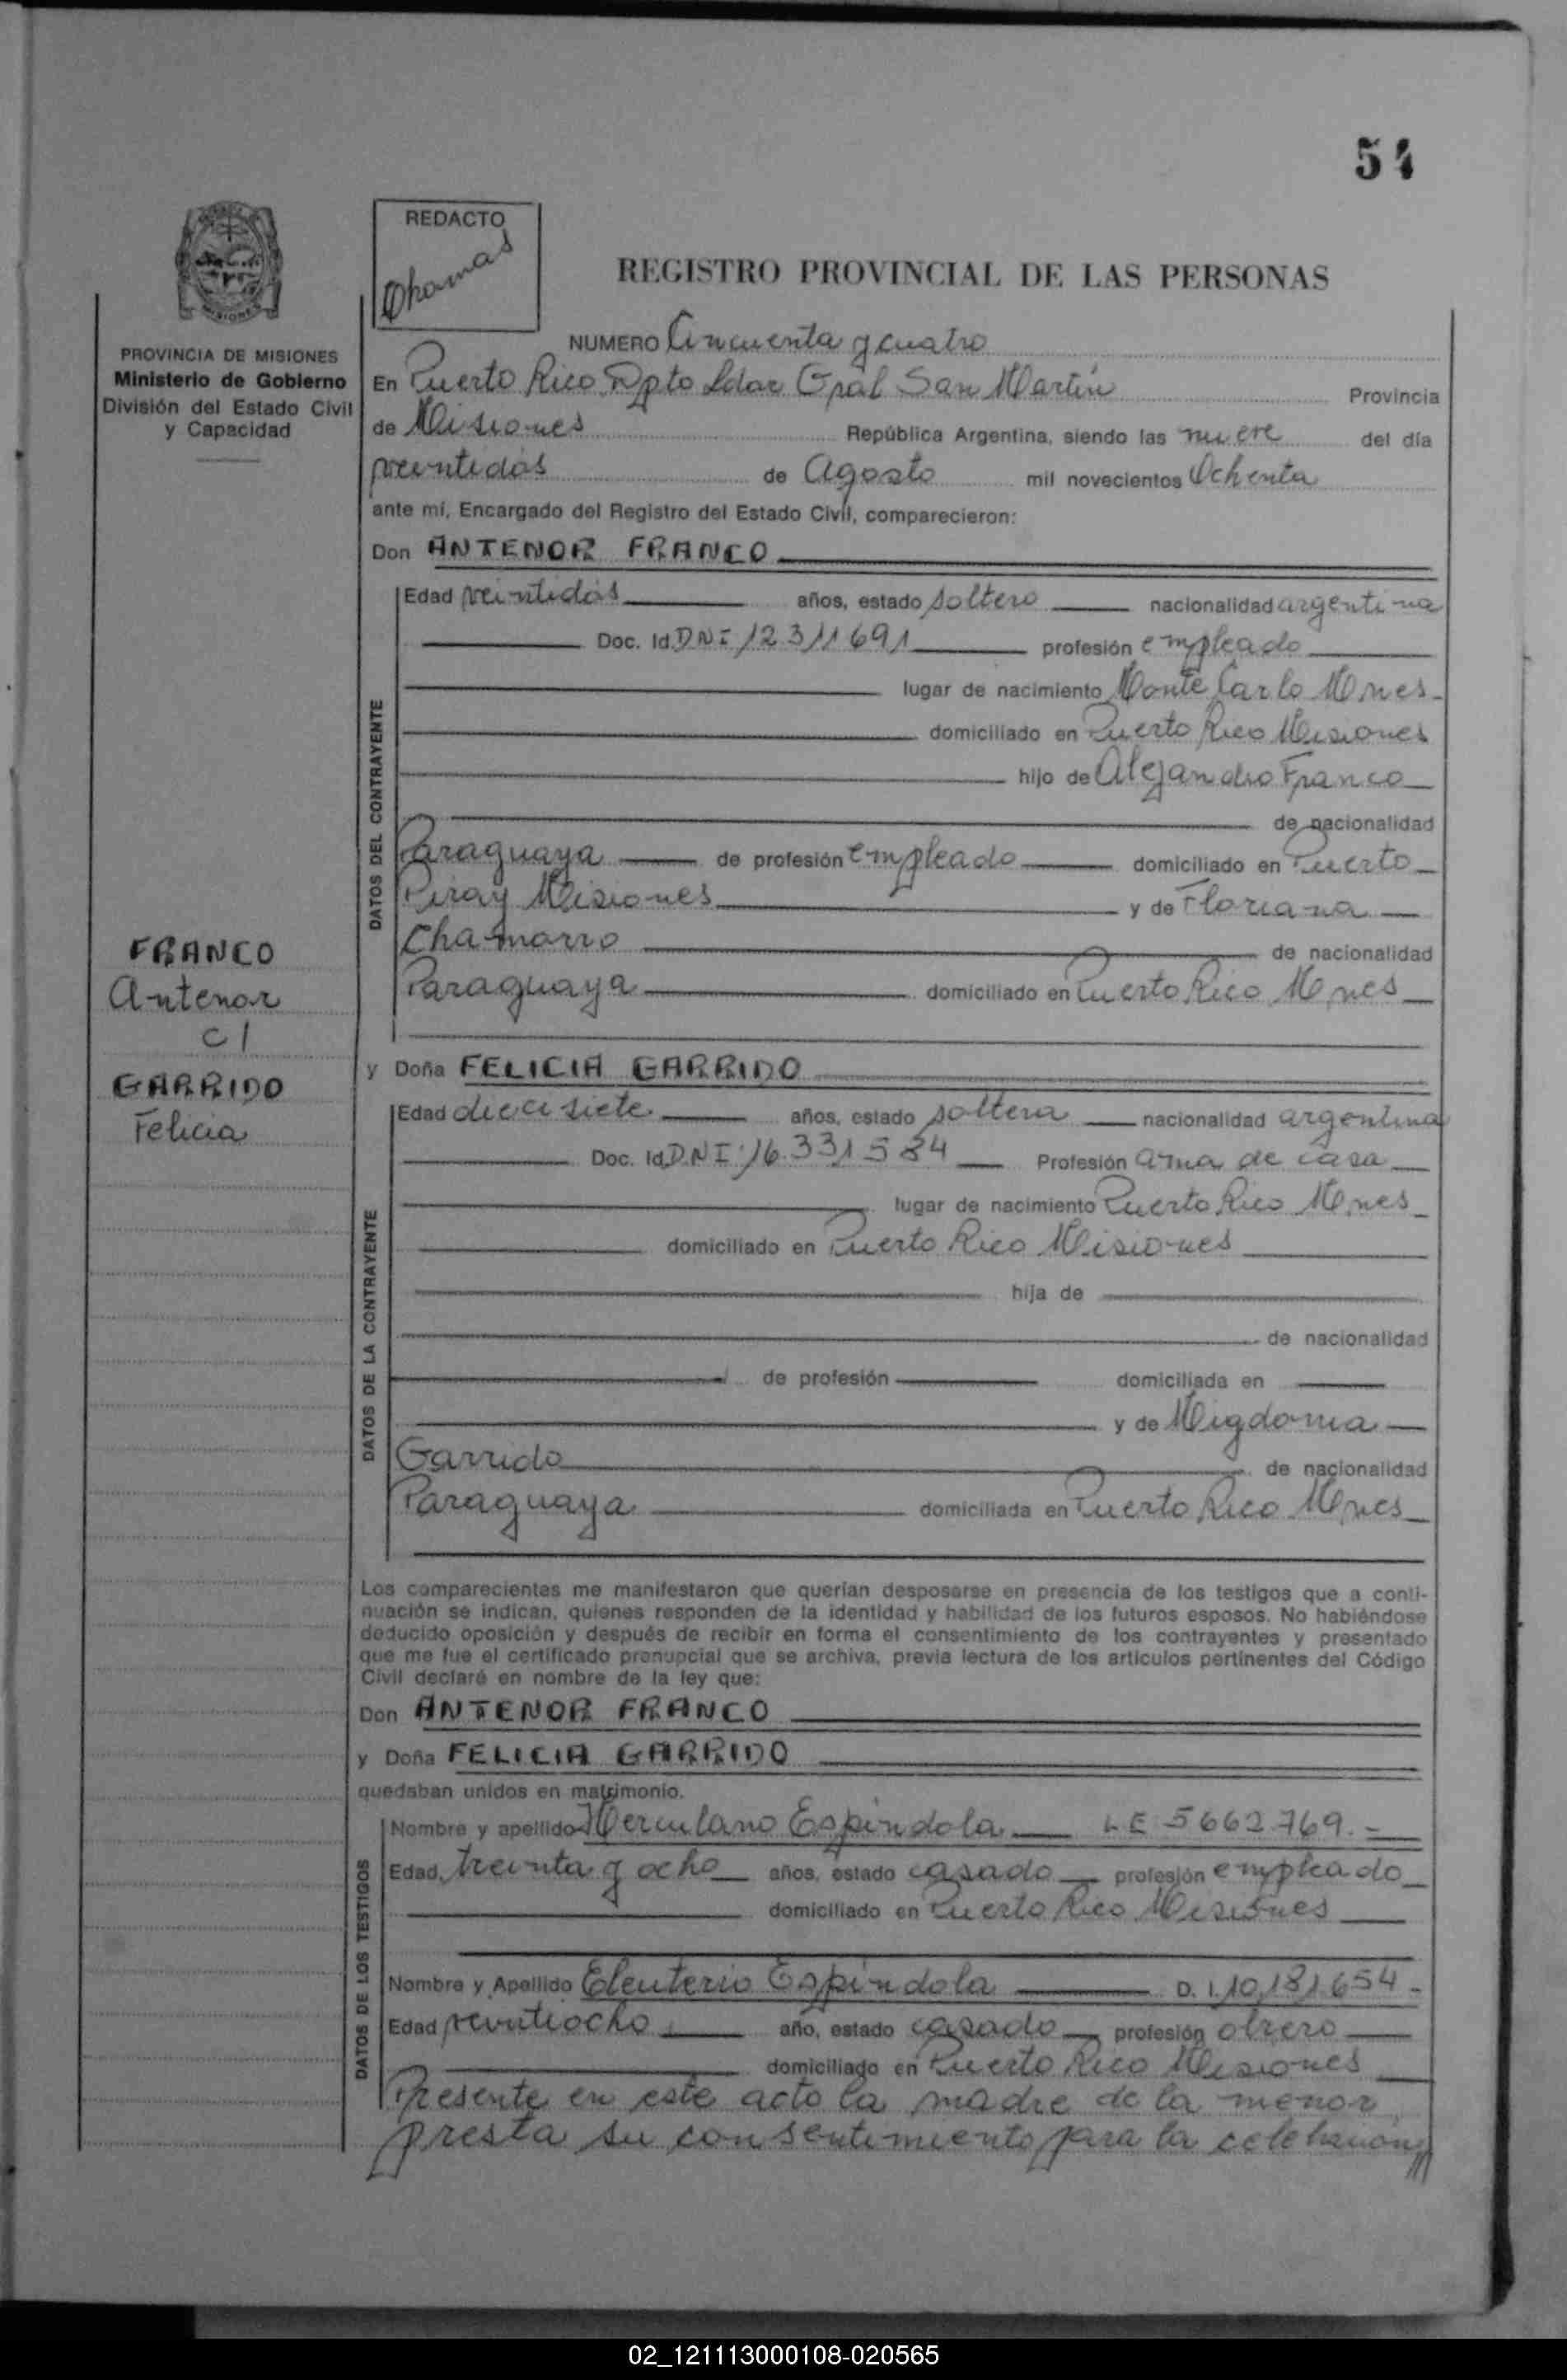 54
REDACTO
REGISTRO PROVINCIAL DE LAS PERSONAS
PROVINCIA DE MISIONES
Ministerio de Gobierno
División del Estado Civil
y Capacidad
FRANCO
Antenor
c/
GARRIDO
Felicia
NUMERO Cincuenta y cuatro
En Puerto Rico Dpto Ldor Gral San Martín Provincia
de Misiones República Argentina, siendo las nueve del día
veintidós de Agosto mil novecientos Ochenta
ante mí, Encargado del Registro del Estado Civil, comparecieron:
Don ANTENOR FRANCO
DATOS DEL CONTRAYENTE
Edad veintidós años, estado soltero nacionalidad argentina
Doc. Id. DNI 12.311691 profesión empleado
lugar de nacimiento Monte Carlo Mnes
domiciliado en Puerto Rico Misiones
hijo de Alejandro Franco
de nacionalidad
Paraguaya de profesión empleado domiciliado en Puerto
Piray Misiones y de Floriana
Chamorro de nacionalidad
Paraguaya domiciliado en Puerto Rico Mnes
y Doña FELICIA GARRIDO
DATOS DE LA CONTRAYENTE
Edad diecisiete años, estado soltera nacionalidad argentina
Doc. Id. DNI 16.331584 Profesión ama de casa
lugar de nacimiento Puerto Rico Mnes
domiciliado en Puerto Rico Misiones
hija de
de nacionalidad
de profesión domiciliada en
y de Migdonia
Garrido de nacionalidad
Paraguaya domiciliada en Puerto Rico Mnes
Los comparecientes me manifestaron que querían desposarse en presencia de los testigos que a conti-
nuación se indican, quienes responden de la identidad y habilidad de los futuros esposos. No habiéndose
deducido oposición y después de recibir en forma el consentimiento de los contrayentes y presentado
que me fue el certificado prenupcial que se archiva, previa lectura de los artículos pertinentes del Código
Civil declaré en nombre de la ley que:
Don ANTENOR FRANCO
y Doña FELICIA GARRIDO
quedaban unidos en matrimonio.
DATOS DE LOS TESTIGOS
Nombre y apellido Herculano Espíndola LE 5662769.-
Edad treinta y ocho años, estado casado profesión empleado
domiciliado en Puerto Rico Misiones
Nombre y Apellido Eleuterio Espíndola D. I. 10.181.654-
Edad veintiocho año, estado casado profesión obrero
domiciliado en Puerto Rico Misiones
Presente en este acto la madre de la menor
presta su consentimiento para la celebración
02_121113000108-020565